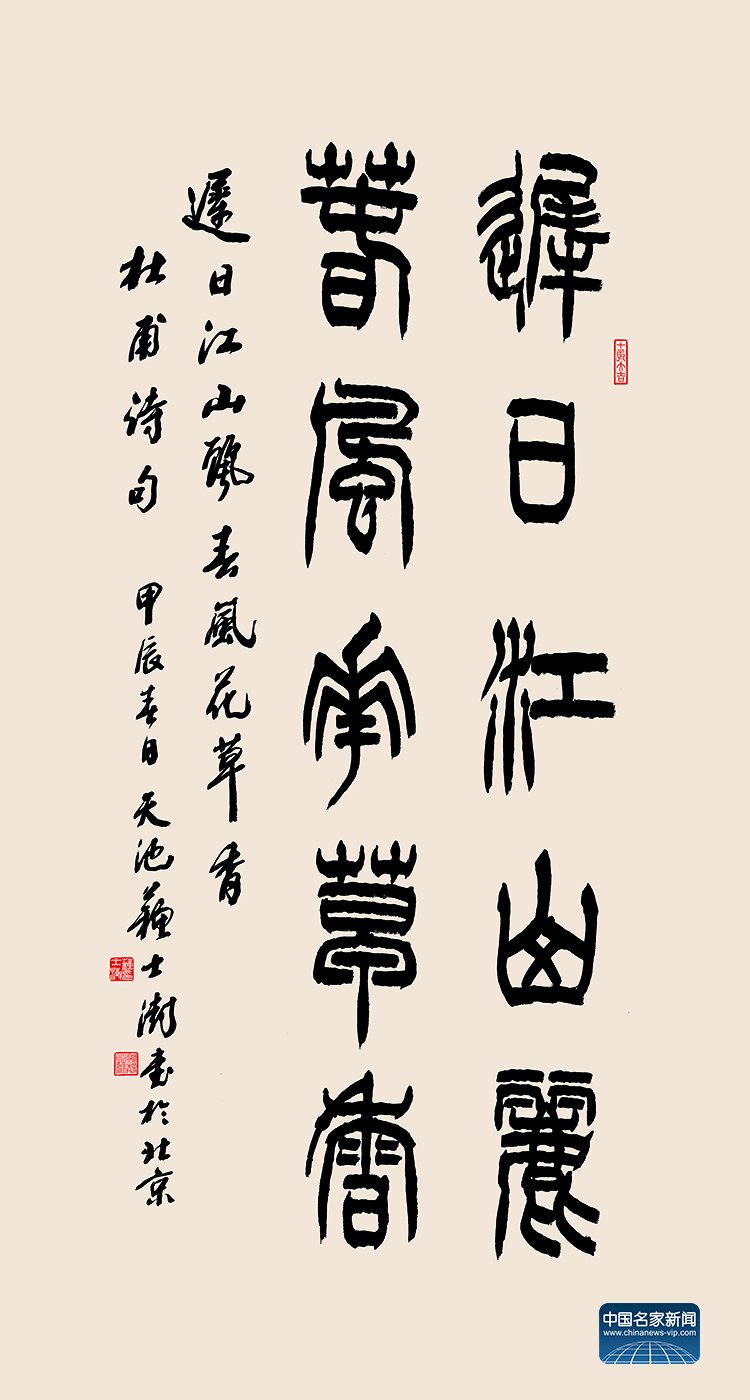 遲日江山麗
萅風華草香
遲日江山麗春風花草香
杜甫诗句 甲辰春日天池蘇士澍書於北京
中国名家新闻
www.chinanews-vip.com